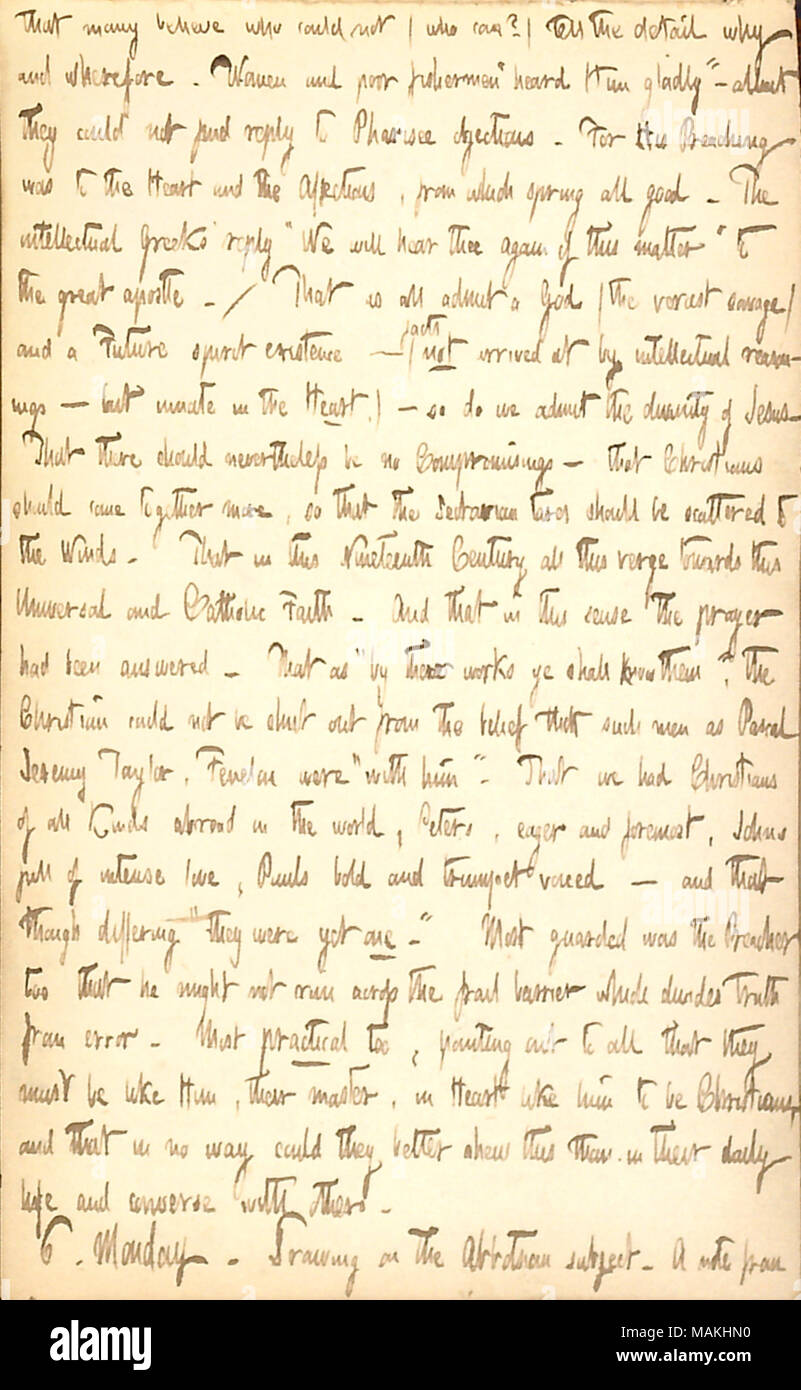 that many believe who could not ( who can? ) tell the detail why
and wherefore. Women and poor fishermen "heard Him gladly" — albeit
they could not find reply to Pharisee objections. For His Preaching
was to the Heart and the Affections, from which spring all good. The
intellectual Greeks reply "We will hear thee again of this matter" to
the great apostle. / That as all admit a God (the veriest savage)
and a Future spirit existence — (facts not arrived at by intellectual reason-
ings — but innate in the Heart,) — so do we admit the divinity of Jesus —
That there should nevertheless be no Compromisings — that Christians
should come together more, so that the Sectarian tares should be scattered to
the Winds. That in this Nineteenth Century all this verge towards this
Universal and Catholic Faith. And that in this sense the prayer
had been answered. That as "by there works ye shall know them", the
Christian could not be shut out from the belief that such men as Pascal
Jeremy Taylor, Fenelon were "with him". That we had Christians
of all Kinds abroad in the world, Peters, eager and foremost, Johns
full of intense love, Pauls bold and trumpet voiced — and that
though differing "they were yet one." Most guarded was the Preacher
too that he might not run across the frail barrier which divides truth
from error. Most practical too, pointing out to all that they
must be like Him, their master, in Heart like him to be Christians,
and that in no way could they better shew this than in their daily
life and converse with others.
6. Monday. Drawing on the Abbotsian subject. A note from
alamy
Image ID: MAKHN0
www.alamy.com